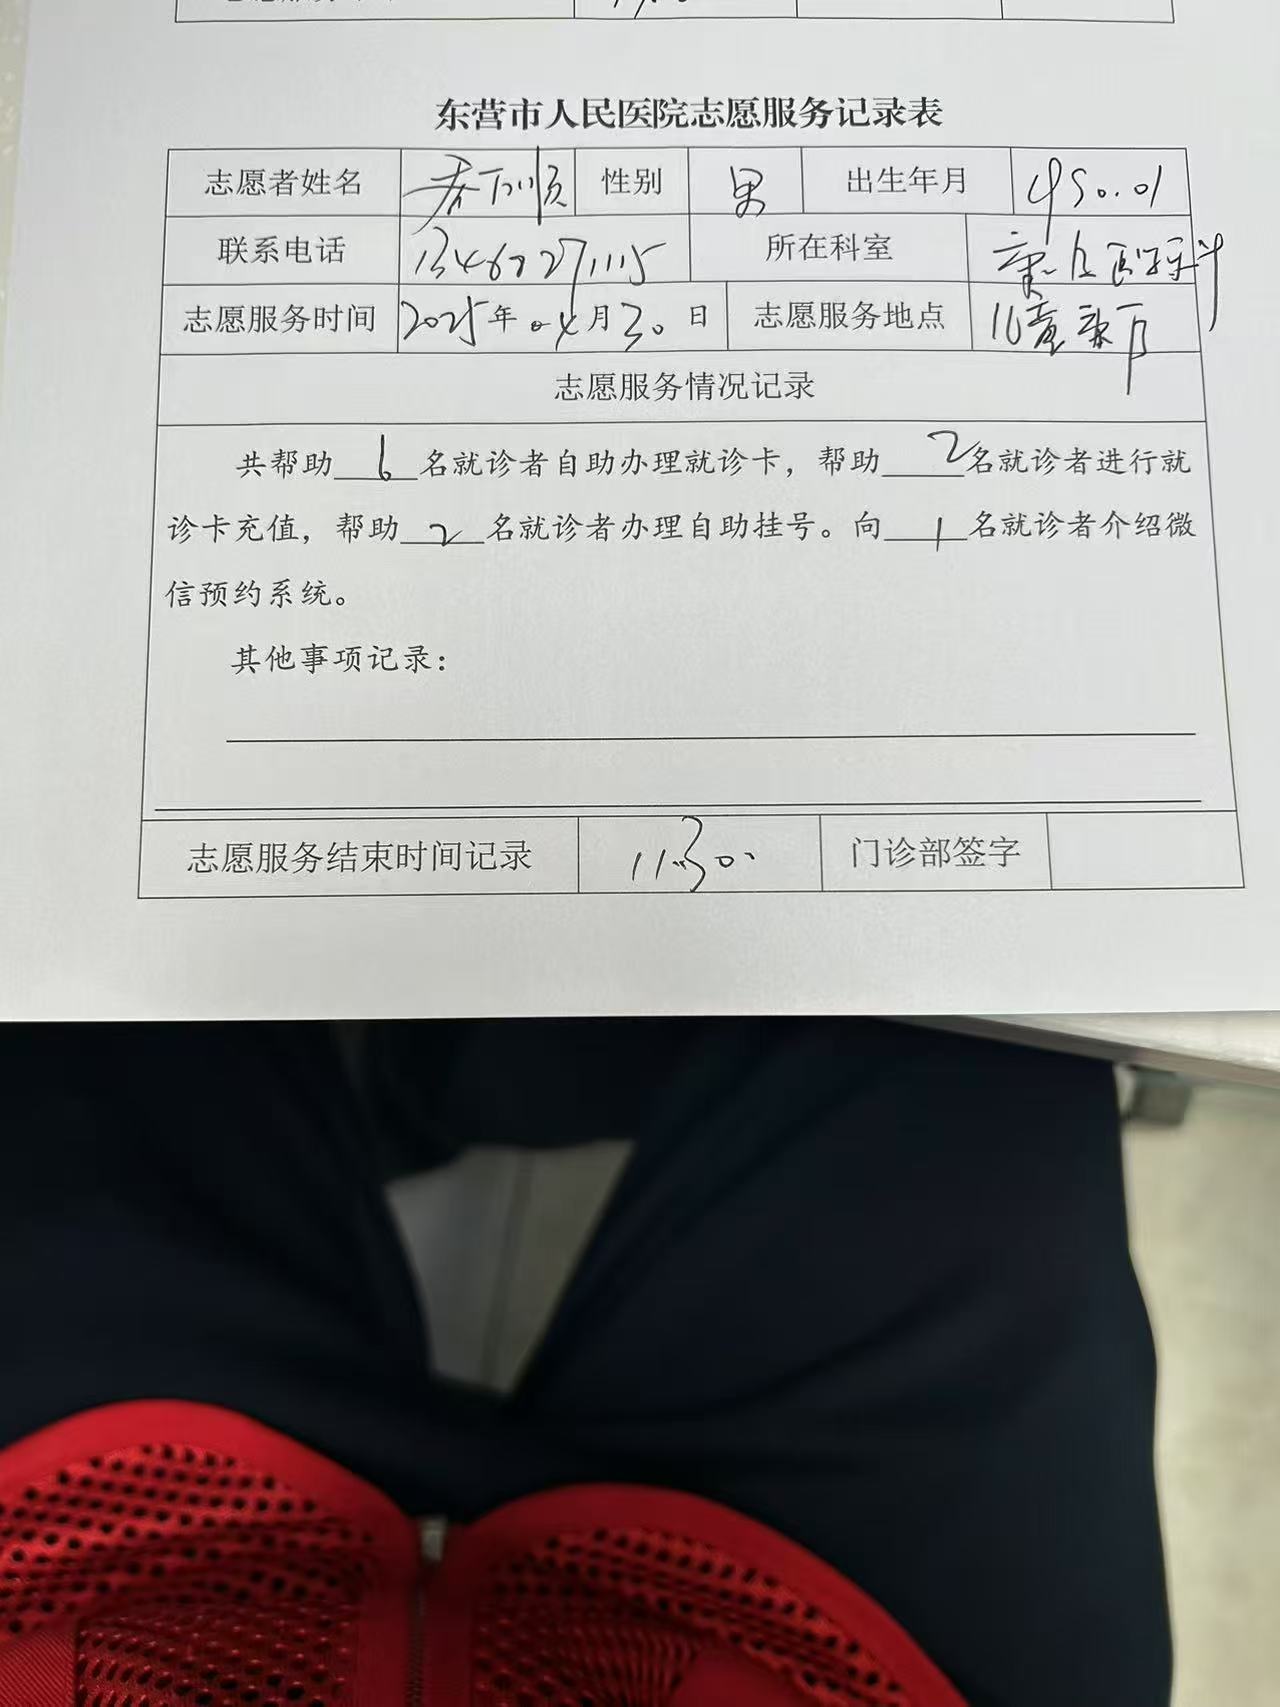 东营市人民医院志愿服务记录表
志愿者姓名 性别 男 出生年月
联系电话 所在科室 康复医学科
志愿服务时间 2025年04月30日 志愿服务地点 儿童康复
志愿服务情况记录
共帮助 6 名就诊者自助办理就诊卡，帮助 2 名就诊者进行就
诊卡充值，帮助 2 名就诊者办理自助挂号。向 1 名就诊者介绍微
信预约系统。
其他事项记录：
志愿服务结束时间记录 11:30 门诊部签字